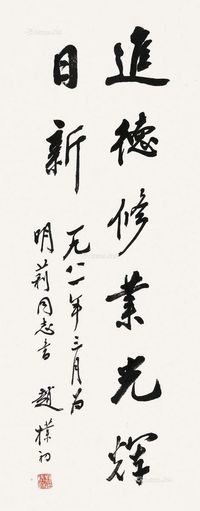 進德修業光輝
日新
一九八一年三月為
明莉同志書 趙樸初